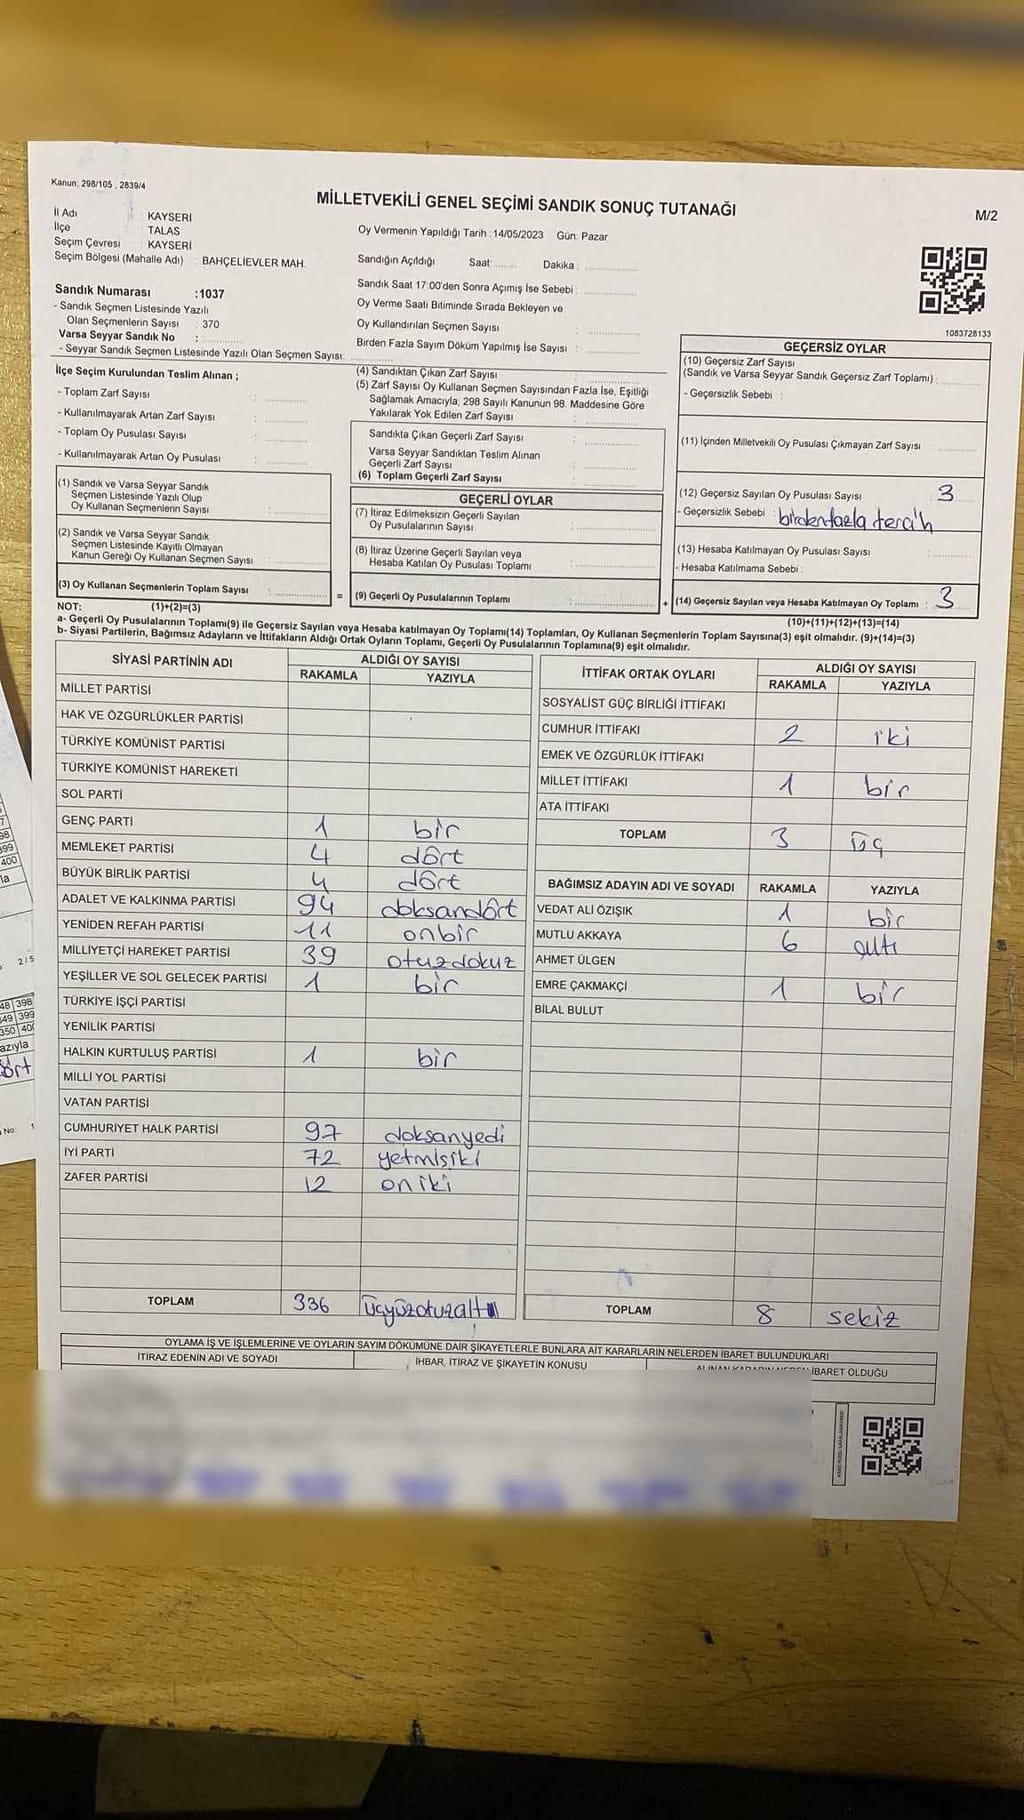 Kanun; 298/105 , 2839/4
MİLLETVEKİLİ GENEL SEÇİMİ SANDIK SONUÇ TUTANAĞI
M/2
İl Adı : KAYSERİ
İlçe : TALAS
Seçim Çevresi : KAYSERİ
Seçim Bölgesi (Mahalle Adı) : BAHÇELİEVLER MAH.
Oy Vermenin Yapıldığı Tarih :14/05/2023 Gün: Pazar
Sandığın Açıldığı Saat:........ Dakika :
Sandık Saat 17:00'den Sonra Açımış İse Sebebi :
Oy Verme Saati Bitiminde Sırada Bekleyen ve
Oy Kullandırılan Seçmen Sayısı :
Birden Fazla Sayım Döküm Yapılmış İse Sayısı :
Sandık Numarası :1037
- Sandık Seçmen Listesinde Yazılı
Olan Seçmenlerin Sayısı : 370
Varsa Seyyar Sandık No :
- Seyyar Sandık Seçmen Listesinde Yazılı Olan Seçmen Sayısı:
1083728133
İlçe Seçim Kurulundan Teslim Alınan ;
- Toplam Zarf Sayısı :
- Kullanılmayarak Artan Zarf Sayısı :
- Toplam Oy Pusulası Sayısı :
- Kullanılmayarak Artan Oy Pusulası :
(1) Sandık ve Varsa Seyyar Sandık
Seçmen Listesinde Yazılı Olup
Oy Kullanan Seçmenlerin Sayısı :
(2) Sandık ve Varsa Seyyar Sandık
Seçmen Listesinde Kayıtlı Olmayan
Kanun Gereği Oy Kullanan Seçmen Sayısı :
(3) Oy Kullanan Seçmenlerin Toplam Sayısı :
(1)+(2)=(3)
(4) Sandıktan Çıkan Zarf Sayısı :
(5) Zarf Sayısı Oy Kullanan Seçmen Sayısından Fazla İse, Eşitliği
Sağlamak Amacıyla; 298 Sayılı Kanunun 98. Maddesine Göre
Yakılarak Yok Edilen Zarf Sayısı :
Sandıkta Çıkan Geçerli Zarf Sayısı :
Varsa Seyyar Sandıktan Teslim Alınan
Geçerli Zarf Sayısı :
(6) Toplam Geçerli Zarf Sayısı :
GEÇERLİ OYLAR
(7) İtiraz Edilmeksizin Geçerli Sayılan
Oy Pusulalarının Sayısı :
(8) İtiraz Üzerine Geçerli Sayılan veya
Hesaba Katılan Oy Pusulası Toplamı :
= (9) Geçerli Oy Pusulalarının Toplamı : +
GEÇERSİZ OYLAR
(10) Geçersiz Zarf Sayısı
(Sandık ve Varsa Seyyar Sandık Geçersiz Zarf Toplamı) :
- Geçersizlik Sebebi :
(11) İçinden Milletvekili Oy Pusulası Çıkmayan Zarf Sayısı :
(12) Geçersiz Sayılan Oy Pusulası Sayısı : 3
- Geçersizlik Sebebi : birdenfazla tercih
(13) Hesaba Katılmayan Oy Pusulası Sayısı :
- Hesaba Katılmama Sebebi :
(14) Geçersiz Sayılan veya Hesaba Katılmayan Oy Toplamı : 3
(10)+(11)+(12)+(13)=(14)
NOT:
a- Geçerli Oy Pusulalarının Toplamı(9) ile Geçersiz Sayılan veya Hesaba katılmayan Oy Toplamı(14) Toplamları, Oy Kullanan Seçmenlerin Toplam Sayısına(3) eşit olmalıdır. (9)+(14)=(3)
b- Siyasi Partilerin, Bağımsız Adayların ve İttifakların Aldığı Ortak Oyların Toplamı, Geçerli Oy Pusulalarının Toplamına(9) eşit olmalıdır.
SİYASİ PARTİNİN ADI ALDIĞI OY SAYISI
RAKAMLA YAZIYLA
MİLLET PARTİSİ
HAK VE ÖZGÜRLÜKLER PARTİSİ
TÜRKİYE KOMÜNİST PARTİSİ
TÜRKİYE KOMÜNİST HAREKETİ
SOL PARTİ
GENÇ PARTİ 1 bir
MEMLEKET PARTİSİ 4 dört
BÜYÜK BİRLİK PARTİSİ 4 dört
ADALET VE KALKINMA PARTİSİ 94 doksandört
YENİDEN REFAH PARTİSİ 11 onbir
MİLLİYETÇİ HAREKET PARTİSİ 39 otuzdokuz
YEŞİLLER VE SOL GELECEK PARTİSİ 1 bir
TÜRKİYE İŞÇİ PARTİSİ
YENİLİK PARTİSİ
HALKIN KURTULUŞ PARTİSİ 1 bir
MİLLİ YOL PARTİSİ
VATAN PARTİSİ
CUMHURİYET HALK PARTİSİ 97 doksanyedi
İYİ PARTİ 72 yetmişiki
ZAFER PARTİSİ 12 oniki
TOPLAM 336 üçyüzotuzaltı
İTTİFAK ORTAK OYLARI ALDIĞI OY SAYISI
RAKAMLA YAZIYLA
SOSYALİST GÜÇ BİRLİĞİ İTTİFAKI
CUMHUR İTTİFAKI 2 iki
EMEK VE ÖZGÜRLÜK İTTİFAKI
MİLLET İTTİFAKI 1 bir
ATA İTTİFAKI
TOPLAM 3 üç
BAĞIMSIZ ADAYIN ADI VE SOYADI RAKAMLA YAZIYLA
VEDAT ALİ ÖZIŞIK 1 bir
MUTLU AKKAYA 6 altı
AHMET ÜLGEN
EMRE ÇAKMAKÇİ 1 bir
BİLAL BULUT
TOPLAM 8 sekiz
OYLAMA İŞ VE İŞLEMLERİNE VE OYLARIN SAYIM DÖKÜMÜNE DAİR ŞİKAYETLERLE BUNLARA AİT KARARLARIN NELERDEN İBARET BULUNDUKLARI
İTİRAZ EDENİN ADI VE SOYADI İHBAR, İTİRAZ VE ŞİKAYETİN KONUSU ALINAN KARARIN NEDEN İBARET OLDUĞU
2 / 5
398
399
400
azıyla
dört